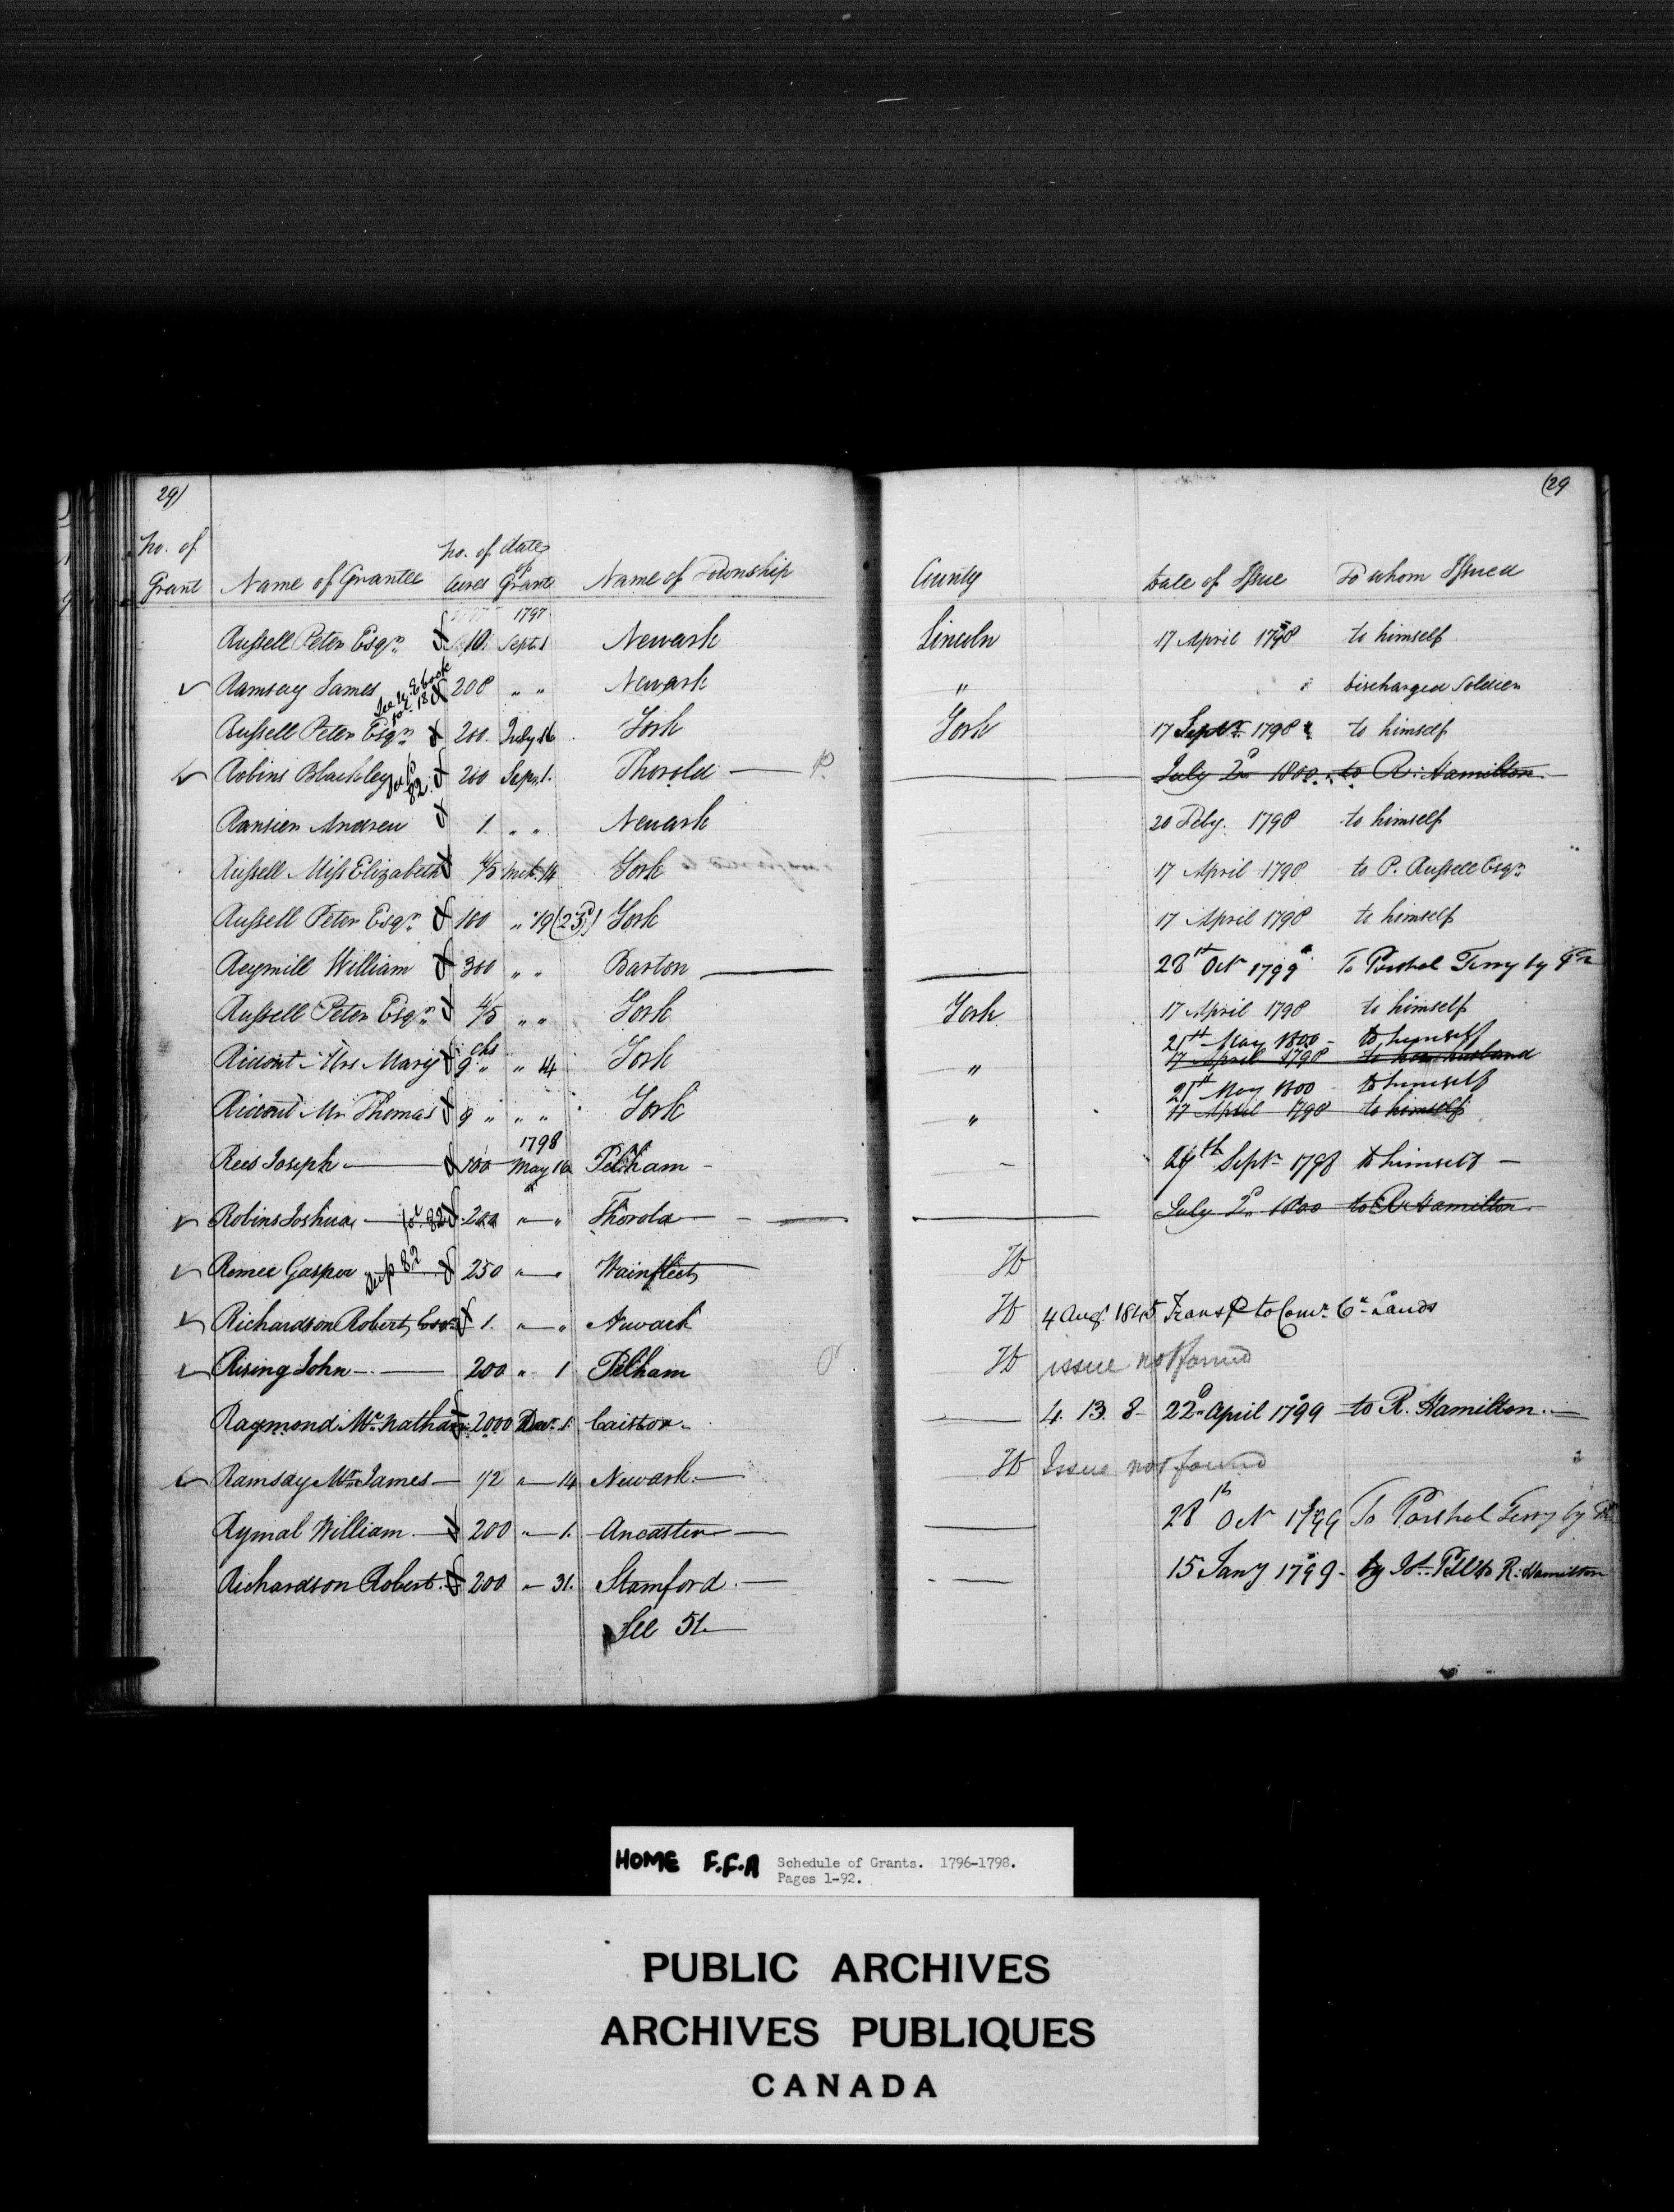 29)
(29
No. of
Grant Name of Grantee No. of Acres dates of Grant Name of Township County Date of Issue To whom Issued
1797
Russell Peter Esqr. 10. Sept. 1 Newark Lincoln 17 April 1798 to himself
Ramsay James 200 " " Newark " discharged Soldier
Russell Peter Esqr. 200. July 16 York York 17 Sept. 1798 to himself
Robins Blackley 82. 200 Sepr. 1. Thorold July 2d 1800 to R. Hamilton
Ransier Andrew 1 " " Newark 20 Feby. 1798 to himself
Russell Miss Elizabeth 4/5 14 York 17 April 1798 to P. Russell Esqr.
Russell Peter Esqr. 100 " 19 (23d) York 17 April 1798 to himself
Reymill William 300 " " Barton 28th Octr 1799 To Parshal Terry by
Russell Peter Esqr. 4/5 " " York York 17 April 1798 to himself
21st May 1800 - to himself
Ridout Mrs Mary 9 chs " " 14 York " 17 April 1798 to her husband
21st May 1800 to himself
Ridout Mr Thomas 9 " " " York " 17 April 1798 to himself
1798
Rees Joseph 100 May 16 Pelham - Sepr 1798 to himself
Robins Joshua 82 200 " " Thorold July 2d 1800 to R Hamilton
Remee Gasper 82 250 " " Wainfleet
Richardson Robert, Esqr. 1. " " Newark 4 Aug. 1845 Transd to Comr. Cr. Lands
Rising John 200 " 1 Pelham issue not found
Raymond Mr. Nathan 2000 Decr. 1. Caistor 4 13 8 22d April 1799 to R. Hamilton.
Ramsay Mr. James 1/2 " 14 Newark. Issue not found
Rymal William 200 " 1. Ancaster 28th Octr 1799 To Parshal Terry by
Richardson Robert. 200 " 31. Stamford. 15 Jany 1799 - by Js. Pell to R. Hamilton
See 51
HOME F.F.A Schedule of Grants. 1796-1798.
Pages 1-92.
PUBLIC ARCHIVES
ARCHIVES PUBLIQUES
CANADA